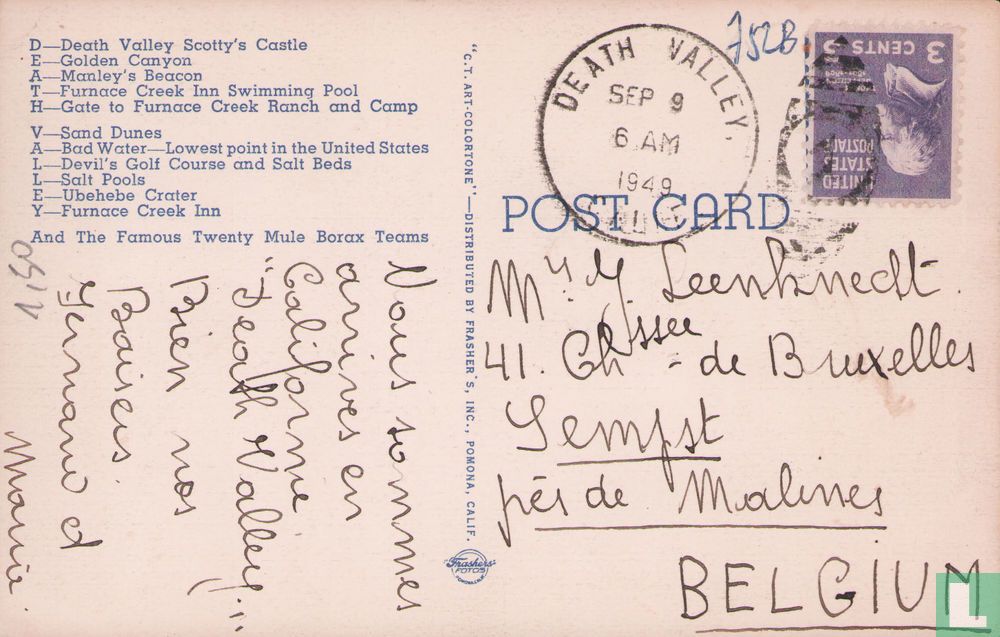 D—Death Valley Scotty's Castle
E—Golden Canyon
A—Manley's Beacon
T—Furnace Creek Inn Swimming Pool
H—Gate to Furnace Creek Ranch and Camp
V—Sand Dunes
A—Bad Water—Lowest point in the United States
L—Devil's Golf Course and Salt Beds
L—Salt Pools
E—Ubehebe Crater
Y—Furnace Creek Inn
And The Famous Twenty Mule Borax Teams
Nous sommes
arrivés en
Californie
"Death Valley"
Bien nos
Baisers
Fernand et
Marie
"C.T. ART-COLORTONE"—DISTRIBUTED BY FRASHER'S, INC., POMONA, CALIF.
Frashers'
FOTOS
POMONA, CALIF.
752B.
DEATH VALLEY,
SEP 9
6 AM
1949
CALIF.
3 CENTS 3
JEFFERSON
1801-1809
UNITED
STATES
POSTAGE
POST CARD
Mr Y. Leenknecht.
41. Chssée de Bruxelles
Sempst
près de Malines
BELGIUM
L